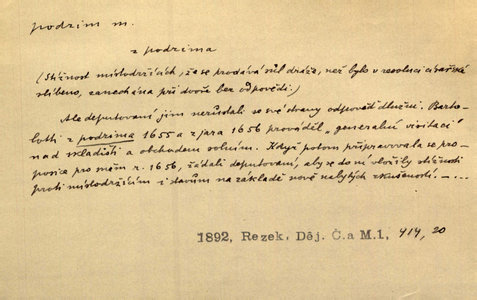 podzim m.
z podzima
(Stížnost místodržících, že se prodává sůl dráže, než bylo v resoluci císařské
slíbeno, zanechána při dvoře bez odpovědi.)
Ale deputovaní jim nezůstali se své strany odpověď dlužni. Barto-
lotti z podzima 1655 a z jara 1656 prováděl „generalní visitaci"
nad skladišti a obchodem solním. Když potom připravovala se pro-
posice pro sněm r. 1656, žádali deputovaní, aby se do ní vložily stížnosti
proti místodržícím i stavům na základě nově nabytých zkušeností — ....
1892, Rezek, Děj. Č. a M. 1, 414, 20